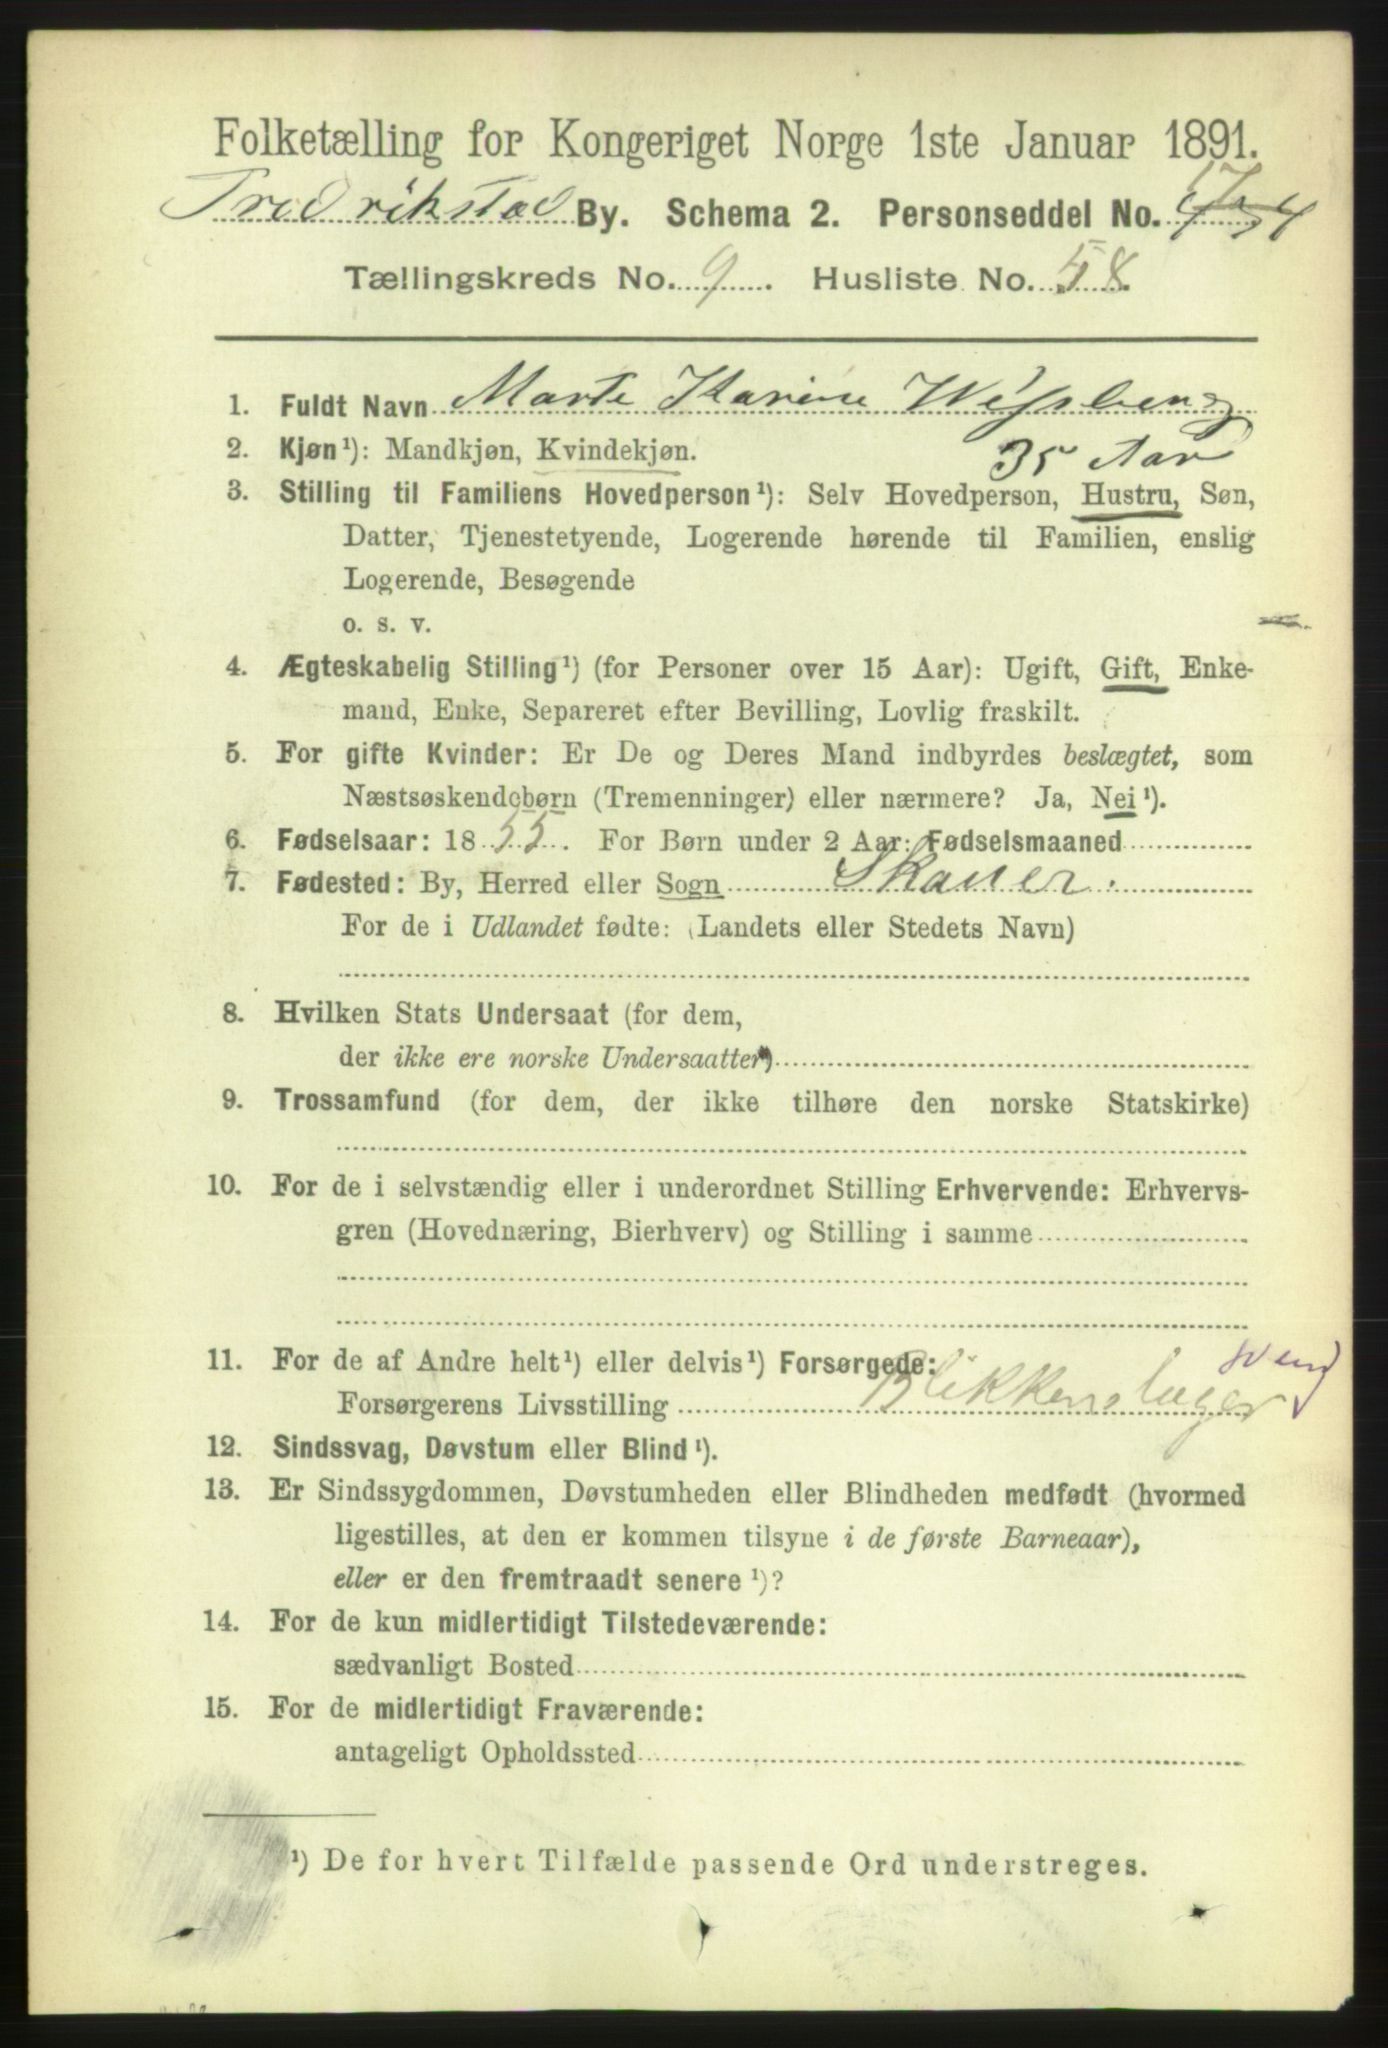 Folketælling for Kongeriget Norge 1ste Januar 1891.
Fredrikstad By. Schema 2. Personseddel No.
Tællingskreds No. 9. Husliste No. 58
1. Fuldt Navn Marte Karine
2. Kjøn¹): Mandkjøn, Kvindekjøn. 35 Aar
3. Stilling til Familiens Hovedperson¹): Selv Hovedperson, Hustru, Søn,
Datter, Tjenestetyende, Logerende hørende til Familien, enslig
Logerende, Besøgende
o. s. v.
4. Ægteskabelig Stilling¹) (for Personer over 15 Aar): Ugift, Gift, Enke-
mand, Enke, Separeret efter Bevilling, Lovlig fraskilt.
5. For gifte Kvinder: Er De og Deres Mand indbyrdes beslægtet, som
Næstsøskendebørn (Tremenninger) eller nærmere? Ja, Nei¹).
6. Fødselsaar: 1855. For Børn under 2 Aar: Fødselsmaaned
7. Fødested: By, Herred eller Sogn
For de i Udlandet fødte: (Landets eller Stedets Navn)
8. Hvilken Stats Undersaat (for dem,
der ikke ere norske Undersaatter)
9. Trossamfund (for dem, der ikke tilhøre den norske Statskirke)
10. For de i selvstændig eller i underordnet Stilling Erhvervende: Erhvervs-
gren (Hovednæring, Bierhverv) og Stilling i samme
11. For de af Andre helt¹) eller delvis¹) Forsørgede: svend
Forsørgerens Livsstilling Blikkenslager
12. Sindssvag, Døvstum eller Blind¹).
13. Er Sindssygdommen, Døvstumheden eller Blindheden medfødt (hvormed
ligestilles, at den er kommen tilsyne i de første Barneaar),
eller er den fremtraadt senere¹)?
14. For de kun midlertidigt Tilstedeværende:
sædvanligt Bosted
15. For de midlertidigt Fraværende:
antageligt Opholdssted
¹) De for hvert Tilfælde passende Ord understreges.